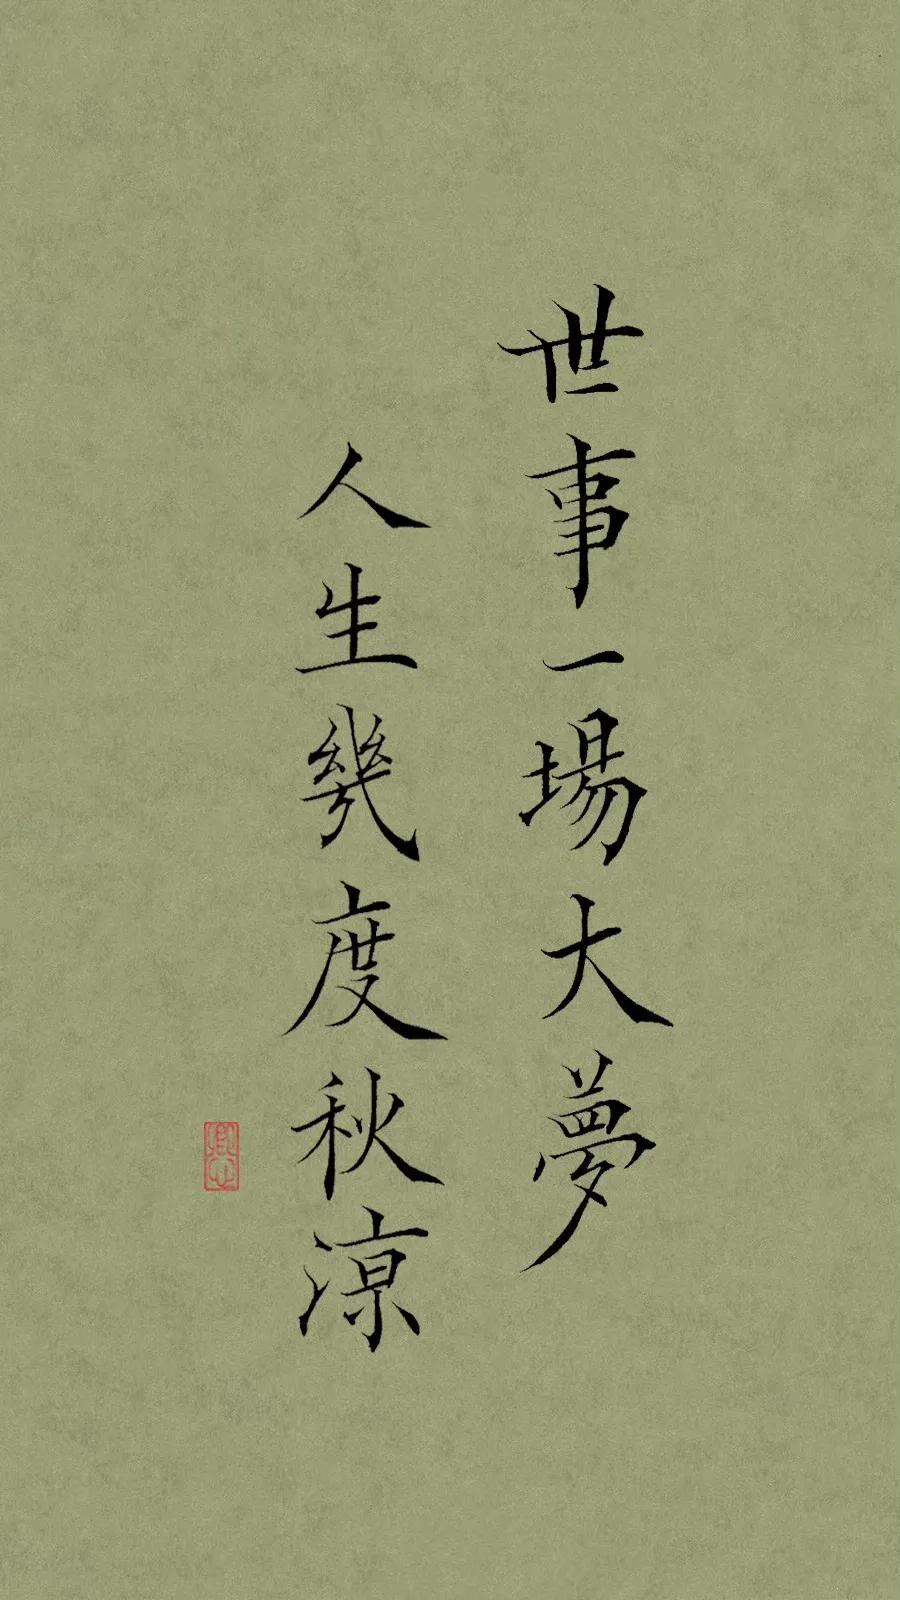 世事一場大夢
人生幾度秋涼